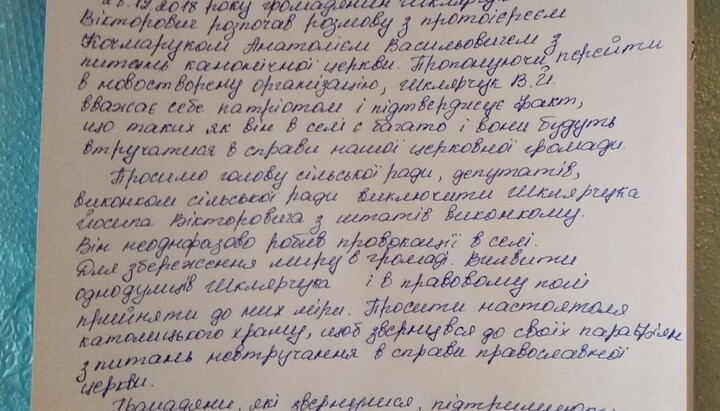 28.12.2018 року громадянин Шклярчук
Вікторович розпочав розмову з протоієреєм
Кочмаруком Анатолієм Васильовичем з
питань канонічної церкви. Пропонуючи перейти
в новостворену організацію, Шклярчук В.Й.
вважає себе патріотом і підтверджує факт,
що таких як він в селі є багато і вони будуть
втручатися в справи нашої церковної громади.
Просимо голову сільської ради, депутатів,
виконком сільської ради виключити Шклярчука
Йосипа Вікторовича з штатів виконкому.
Він неоднфазово робив провокації в селі.
Для збереження миру в громаді. Виявити
однодумців Шклярчука і в правовому полі
прийняти до них міри. Просити настоятеля
католицького храму, щоб звернувся до своїх парафіян
з питань невтручання в справи православної
церкви.
Громадяни, які звернулися, підтримують